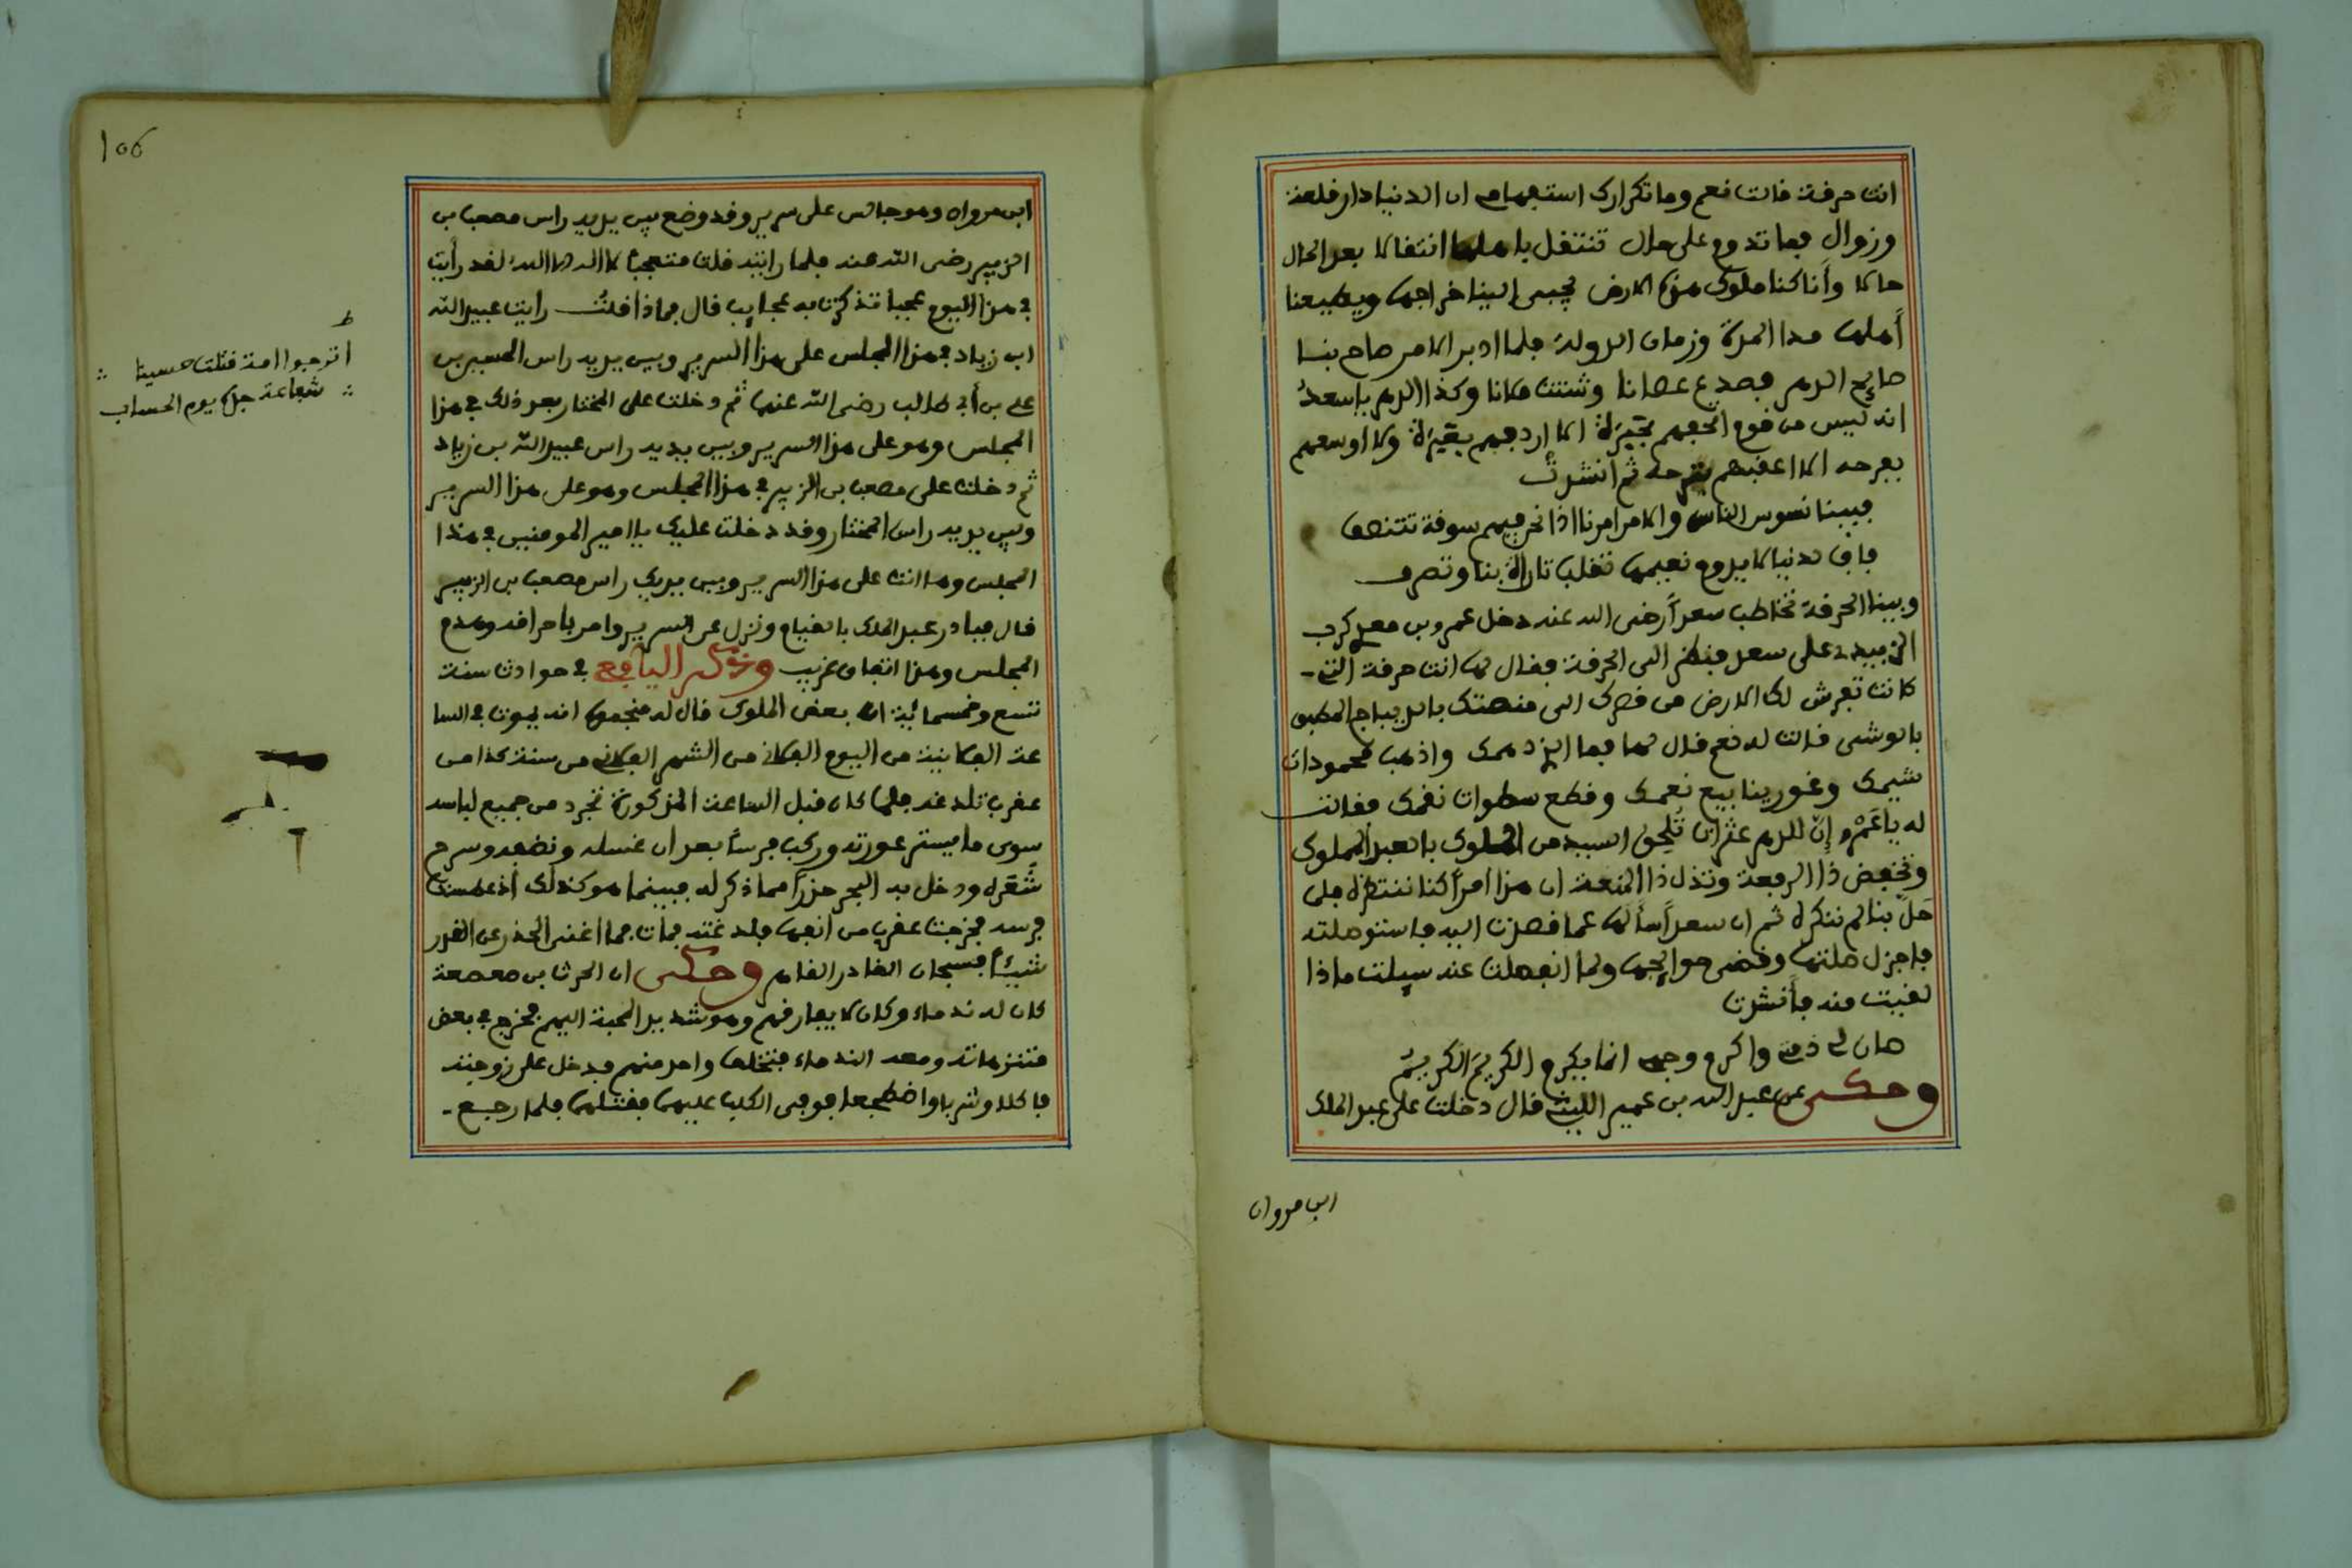 انت حرفة قالت نعم وما تكرارك استفهامي ان الدنيا دار قلعة
وزوال فما تدوم على حال تنتقل باهلها انتقالا بعد الحال
حالا وأنا كنا ملوك هذه الارض يجبى الينا خراجها ويطيعنا
أهلها مدا المدة وزمان الدولة فلما ادبر الامر صاح بنا
صايح الدهر فصدع عصانا وشتت ملانا وكذا الدهر يا سعدُ
انه ليس من قوم اتحفهم بحيرة الا اردفهم بعبرة ولا اوسعهم
بفرحه الا اعقبهم بترحه ثم أنشدت
فبينا نسوس الناس والامر امرنا اذا نحن فيهم سوقة نتنصف
فاف لدنيا لا يدوم نعيمها تقلب تارة بنا وتصرف
وبينا الحرفة تخاطب سعداً رضى الله عنه دخل عمرو بن معدي كرب
الزبيدي على سعد فنظر الى الحرفة فقال لها انت حرفة التي
كانت تفرش لك الارض من قصرك الى منصتك بالديباج المطبق
بالوشى قالت له نعم قال لها فما الذى دهمك واذهب محمودات
شيمك وغور ينابيع نعمك وقطع سطوات نقمك فقالت
له يا عَمْرو إنّ للدهر عثرات تُلحق السيد من الملوك بالعبد المملوك
وتخفض ذا الرفعة وتذل ذا المنعة ان هذا امراً كنا ننتظره فلما
حَلّ بنا لم ننكره ثم ان سعداً سألها عما قصدت اليه فاستوصلته
فاجزل صلتها وقضى حوايجها ولما انفصلت عنه سيلت ماذا
لقيت منه فأنشدت
صان لي ذمتي واكرم وجهى انما يكرم الكريمَ الكريمُ
وحكى عن عبد الله بن عمير الليثي قال دخلت على عبد الملك
ابن مروان
106
ابن مروان وهو جالس على سرير وقد وضع بين يديه راس مصعب بن
الزبير رضى الله عنه فلما رايته قلت متعجبا لا اله الا الله لقد رأيت
في هذا اليوم عجبا تذكرت به عجايب قال فماذا قلتُ رايت عبيد الله
ابن زياد في هذا المجلس على هذا السرير وبين يديه راس الحسين بن
علي بن أبي طالب رضى الله عنهما ثم دخلت على المختار بعد ذلك في هذا
المجلس وهو على هذا السرير وبين يديه راس عبيد الله بن زياد
ثم دخلت على مصعب بن الزبير في هذا المجلس وهو على هذا السرير
وبين يديه راس المختار وقد دخلت عليك يا امير المومنين في هذا
المجلس وها انت على هذا السرير وبين يديك راس مصعب بن الزبير
قال فبادر عبد الملك بالقيام ونزل عن السرير وامر باحراقه وهدم
المجلس وهذا اتفاق غريب وذكر اليافعي في حوادث سنة
تسع وخمسمائية ان بعض الملوك قال له منجموه انه يموت في السا
عة الفلانية من اليوم الفلانى من الشهر الفلانى من سنة كذا من
عقرب تلدغه فلما كان قبل الساعة المذكورة تجرد من جميع لباسه
سوى ما يستر عورته وركب فرساً بعد ان غسله ونظفه وسرح
شَعَره ودخل به البحر حذراً مما ذكر له فبينما هو كذلك اذ عطست
فرسه فخرجت عقرب من انفها فلدغته فمات فما اغنى الحذر عن القدر
شيئاً فسبحان القادر القاهر وحكى ان الحرث بن صعصعة
كان له ندماء وكان لا يفارقهم وهو شديد المحبة اليهم فخرج في بعض
متنزهاته ومعه الندماء فتخلف واحد منهم فدخل على زوجته
فاكلا وشربا واضطجعا فوثب الكلب عليهما فقتلهما فلما رجع
ط
اترجوا امة قتلت حسينا
شفاعة جدّه يوم الحساب